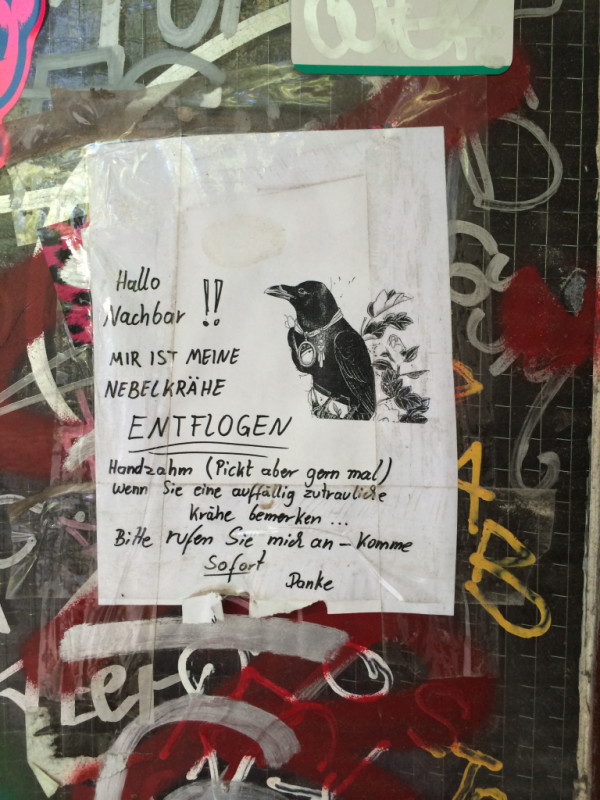 Hallo
Nachbar !!
MIR IST MEINE
NEBELKRÄHE
ENTFLOGEN
Handzahm (Pickt aber gern mal)
Wenn Sie eine auffällig zutrauliche
Krähe bemerken ...
Bitte rufen Sie mich an – Komme
Sofort
Danke